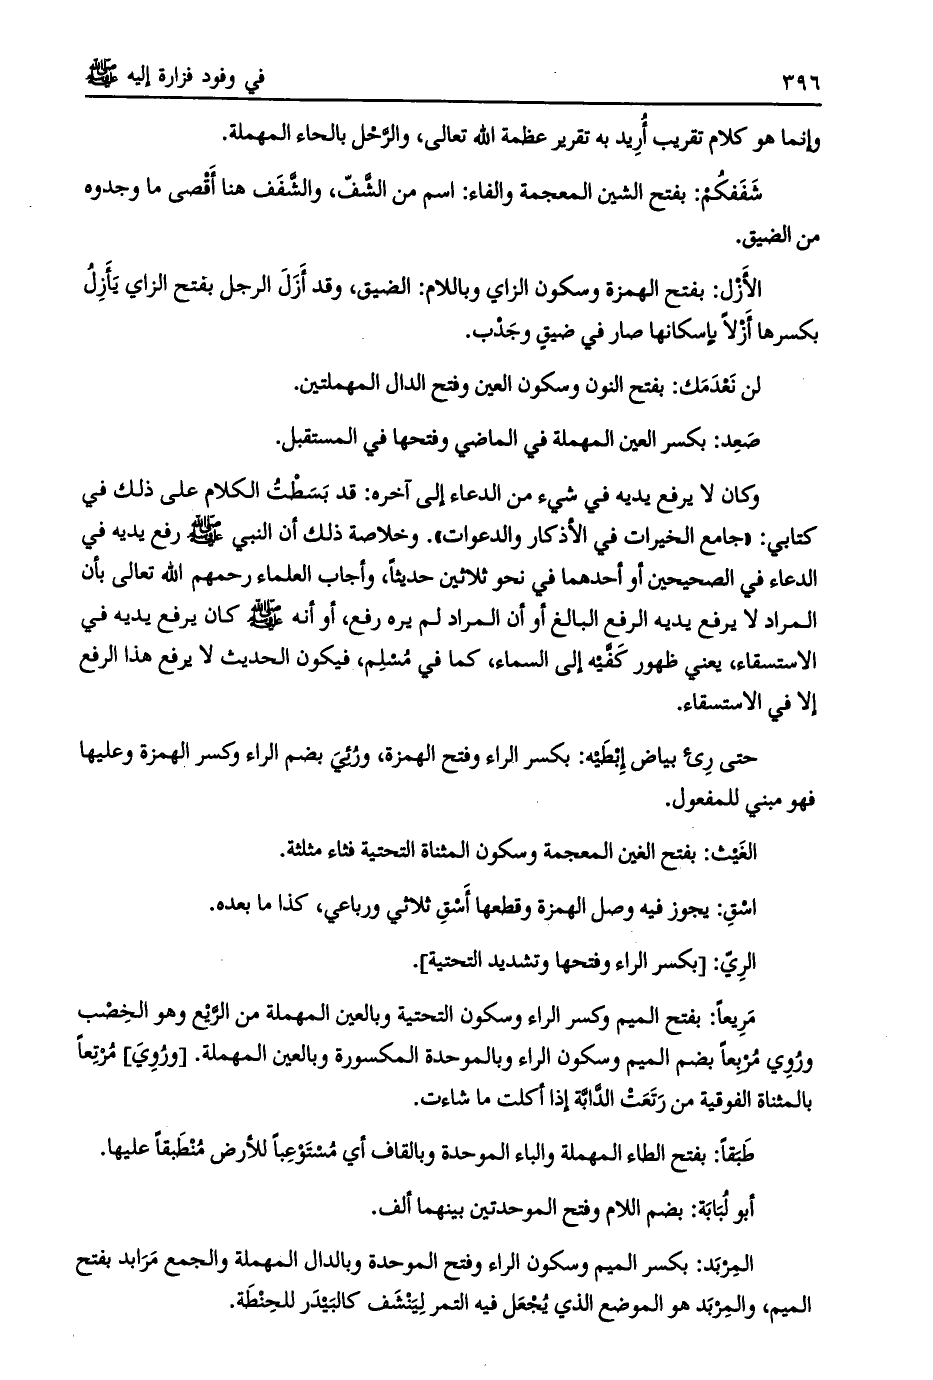 ٣٩٦ في وفود فزارة إليه ﷺ
وإنما هو كلام تقريب أُريد به تقرير عظمة الله تعالى، والرَّحْل بالحاء المهملة.
شَفَفكُمْ: بفتح الشين المعجمة والفاء: اسم من الشَّفّ، والشَّفَف هنا أَقْصى ما وجدوه
من الضيق.
الأَزْل: بفتح الهمزة وسكون الزاي وباللام: الضيق، وقد أَزَلَ الرجل بفتح الزاي يَأْزِلُ
بكسرها أَزْلاً بإسكانها صار في ضيقٍ وجَدْب.
لن نَعْدَمَك: بفتح النون وسكون العين وفتح الدال المهملتين.
صَعِد: بكسر العين المهملة في الماضي وفتحها في المستقبل.
وكان لا يرفع يديه في شيء من الدعاء إلى آخره: قد بَسَطْتُ الكلام على ذلك في
كتابي: «جامع الخيرات في الأذكار والدعوات». وخلاصة ذلك أن النبي ﷺ رفع يديه في
الدعاء في الصحيحين أو أحدهما في نحو ثلاثين حديثاً، وأجاب العلماء رحمهم الله تعالى بأن
المراد لا يرفع يديه الرفع البالغ أو أن المراد لم يره رفع، أو أنه ﷺ كان يرفع يديه في
الاستسقاء، يعني ظهور كَفَّيْه إلى السماء، كما في مُسْلِم، فيكون الحديث لا يرفع هذا الرفع
إلا في الاستسقاء.
حتى رِئ بياض إِبْطَيْه: بكسر الراء وفتح الهمزة، ورُئِيَ بضم الراء وكسر الهمزة وعليها
فهو مبني للمفعول.
الغَيْث: بفتح الغين المعجمة وسكون المثناة التحتية فثاء مثلثة.
اسْقِ: يجوز فيه وصل الهمزة وقطعها أَسْقِ ثلاثي ورباعي، كذا ما بعده.
الرِيّ: [بكسر الراء وفتحها وتشديد التحتية].
مَرِيعاً: بفتح الميم وكسر الراء وسكون التحتية وبالعين المهملة من الرَّيْع وهو الخِصْب
ورُوِي مُرْبِعاً بضم الميم وسكون الراء وبالموحدة المكسورة وبالعين المهملة. [ورُوِيَ] مُرْتِعاً
بالمثناة الفوقية من رَتَعَتْ الدَّابَّة إذا أكلت ما شاءت.
طَبَقاً: بفتح الطاء المهملة والباء الموحدة وبالقاف أي مُسْتَوْعِباً للأرض مُنْطَبِقاً عليها.
أبو لُبَابَة: بضم اللام وفتح الموحدتين بينهما ألف.
المِرْبَد: بكسر الميم وسكون الراء وفتح الموحدة وبالدال المهملة والجمع مَرَابد بفتح
الميم، والمِرْبَد هو الموضع الذي يُجْعَل فيه التمر لِيَنْشَف كالبَيْدَر للحِنْطَة.